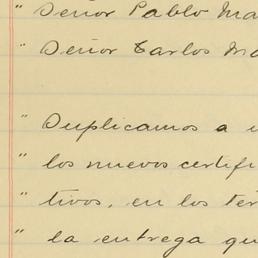 " Señor Pablo Ma
" Señor Carlos Ma
" Suplicamos a u
" los nuevos certifi
" tivos, en los tér
" la entrega qu